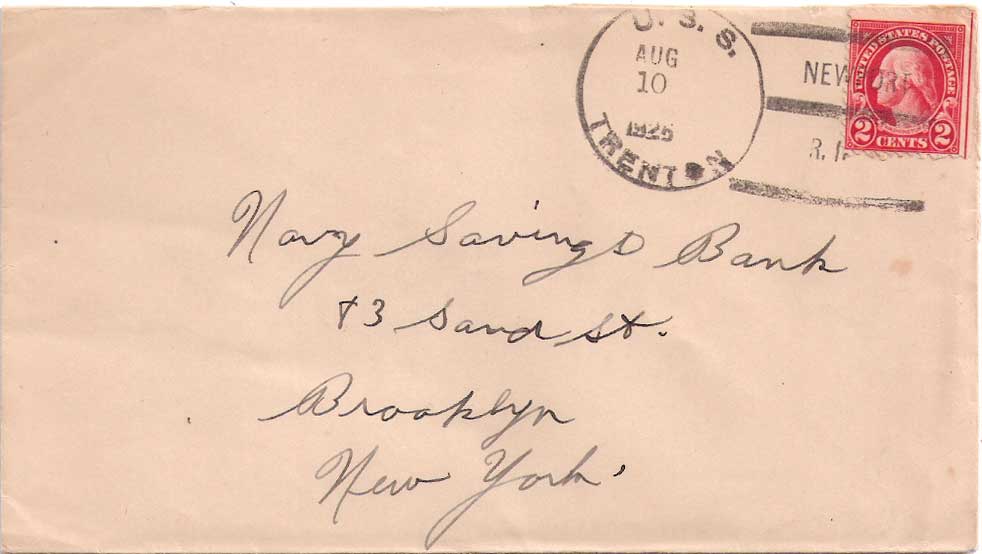 U.S.S.
AUG
10
TRENTON
NEWPORT
R.I.
UNITED STATES POSTAGE
2 CENTS 2
Navy Savings Bank
Sand St.
Brooklyn
New York